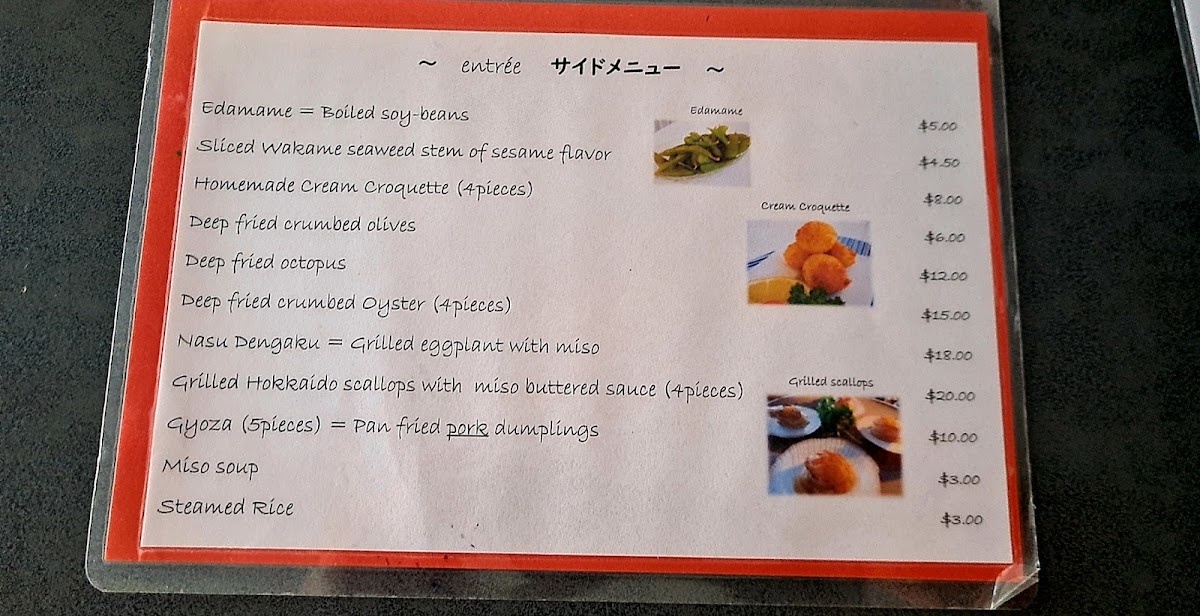 ~ entrée サイドメニュー ~
Edamame = Boiled soy-beans $5.00
Sliced Wakame seaweed stem of sesame flavor $4.50
Homemade Cream Croquette (4pieces) $8.00
Deep fried crumbed olives $6.00
Deep fried octopus $12.00
Deep fried crumbed Oyster (4pieces) $15.00
Nasu Dengaku = Grilled eggplant with miso $18.00
Grilled Hokkaido scallops with miso buttered sauce (4pieces) $20.00
Gyoza (5pieces) = Pan fried pork dumplings $10.00
Miso soup $3.00
Steamed Rice $3.00
Edamame
Cream Croquette
Grilled scallops